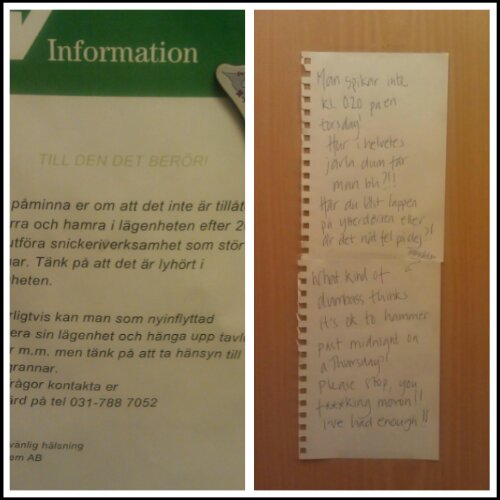 Information
TILL DEN DET BERÖR!
påminna er om att det inte är tillåt
rra och hamra i lägenheten efter 2
utföra snickeriverksamhet som stör
ar. Tänk på att det är lyhört i
heten.
rligtvis kan man som nyinflyttad
era sin lägenhet och hänga upp tavl
r m.m. men tänk på att ta hänsyn till
grannar.
rågor kontakta er
ård på tel 031-788 7052
vänlig hälsning
em AB
Man spikar inte
kl. 020 på en
torsdag!
Hur i helvetes
jävla dum får
man bli?!!
Har du läst lappen
på ytterdörren eller
är det nåt fel på dej?!
What kind of
dumbass thinks
it's ok to hammer
past midnight on
a Thursday?
Please stop, you
moron!!
I've had enough!!